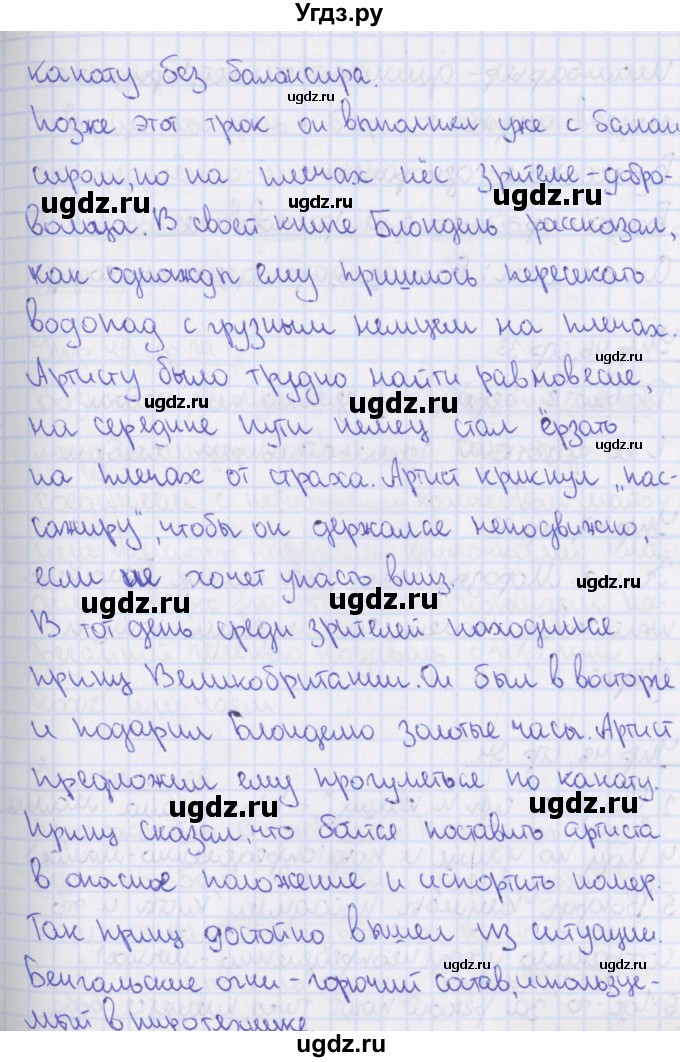 Угдз.ру
канату без балансира.
Позже этот трюк он выполнил уже с балан
сиром, но на плечах нёс зрителя-добро-
вольца. В своей книге Блондель рассказал,
как однажды ему пришлось пересекать
водопад с грузным немцем на плечах.
Артисту было трудно найти равновесие,
на середине пути немец стал ёрзать
на плечах от страха. Артист крикнул „пас-
сажиру", чтобы он держался неподвижно,
если не хочет упасть вниз.
В тот день среди зрителей находился
принц Великобритании. Он был в восторге
и подарил Блонделю золотые часы. Артист
предложил ему прогуляться по канату.
Принц сказал, что боится поставить артиста
в опасное положение и испортить номер.
Так принц достойно вышел из ситуации.
Бенгальские огни - горючий состав, используе-
мый в пиротехнике
ugdz.ru
ugdz.ru
ugdz.ru
ugdz.ru
ugdz.ru
ugdz.ru
ugdz.ru
ugdz.ru
ugdz.ru
ugdz.ru
ugdz.ru
ugdz.ru
ugdz.ru
ugdz.ru
ugdz.ru
ugdz.ru
ugdz.ru
ugdz.ru
ugdz.ru